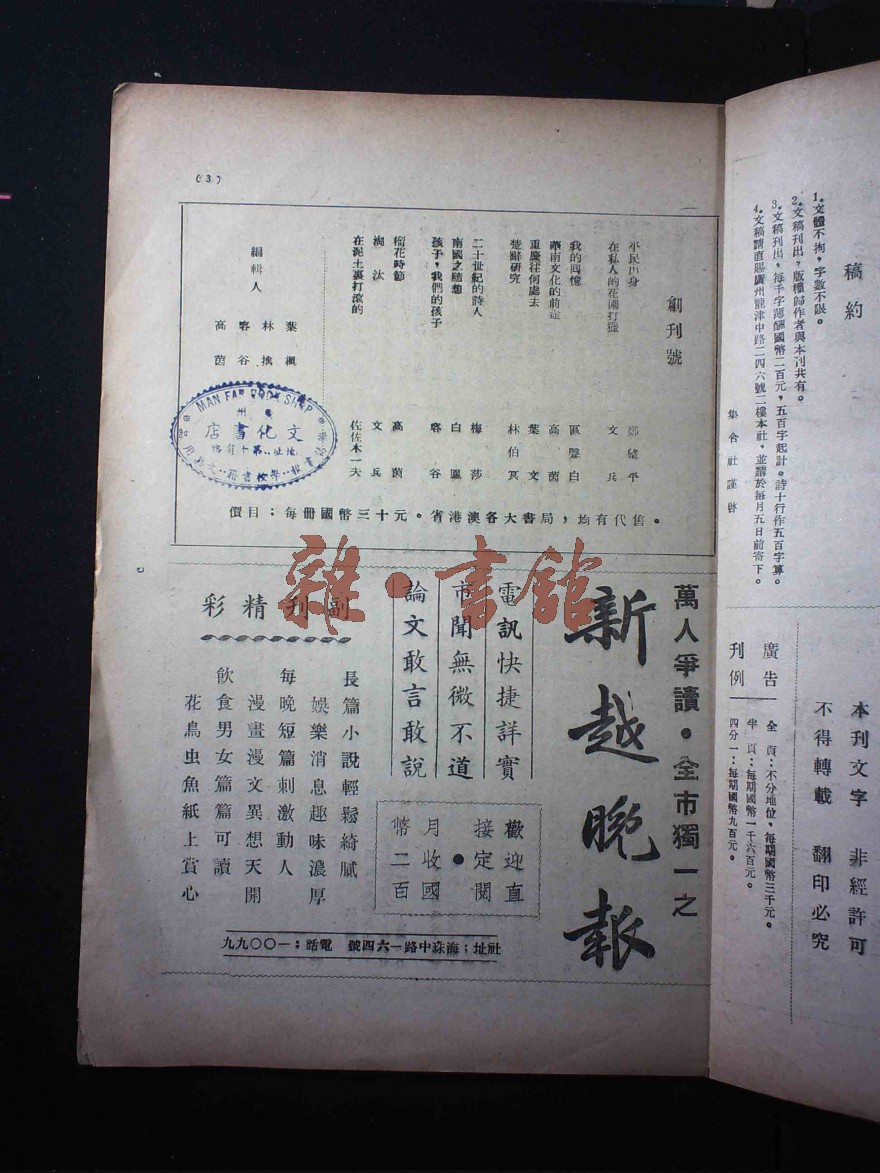 (3)
創刊號
平民出身　鄭望平
在私人的花園打獵　文兵
我的回憶　區聲白
華南文化的前途　高茵
重慶往何處去　葉文
楚辭研究　林伯冥
二十世紀的詩人　梅莎
南國之隨想　白
孩子，我們的孩子　容谷
榴花時節　高茵
溯汰　文兵
在泥土裏打滾的　佐佐木一夫
編輯人
葉楓
林擒
容谷
高茵
價目：每冊國幣三十元。省港澳各大書局，均有代售。
MAN FAR BOOK SHOP
州
文化書店
萬人爭讀·全市獨一之
新越晚報
電訊快捷詳實
市聞無微不道
論文敢言敢說
歡迎直
接定閱
月收國
幣二百
副刊精彩
長篇小說輕鬆綺膩
娛樂消息趣味濃厚
每晚短篇刺激動人
漫畫漫文異想天開
飲食男女篇篇可讀
花鳥虫魚紙上賞心
社址：海珠中路一六四號　電話：一〇〇九九
雜·書館
稿約
1.文體不拘，字數不限。
2.文稿刊出，版權歸作者與本刊共有。
3.文稿刊出，每千字薄酬國幣二百元，五百字起計。詩十行作五百字算。
4.文稿請直賜廣州龍津中路二四六號二樓本社，並請於每月五日前寄下。
集合社謹啓
本刊文字　非經許可
不得轉載　翻印必究
廣告
刊例
全頁：不分地位，每期國幣三千元。
半頁：每期國幣一千六百元。
四分一：每期國幣九百元。